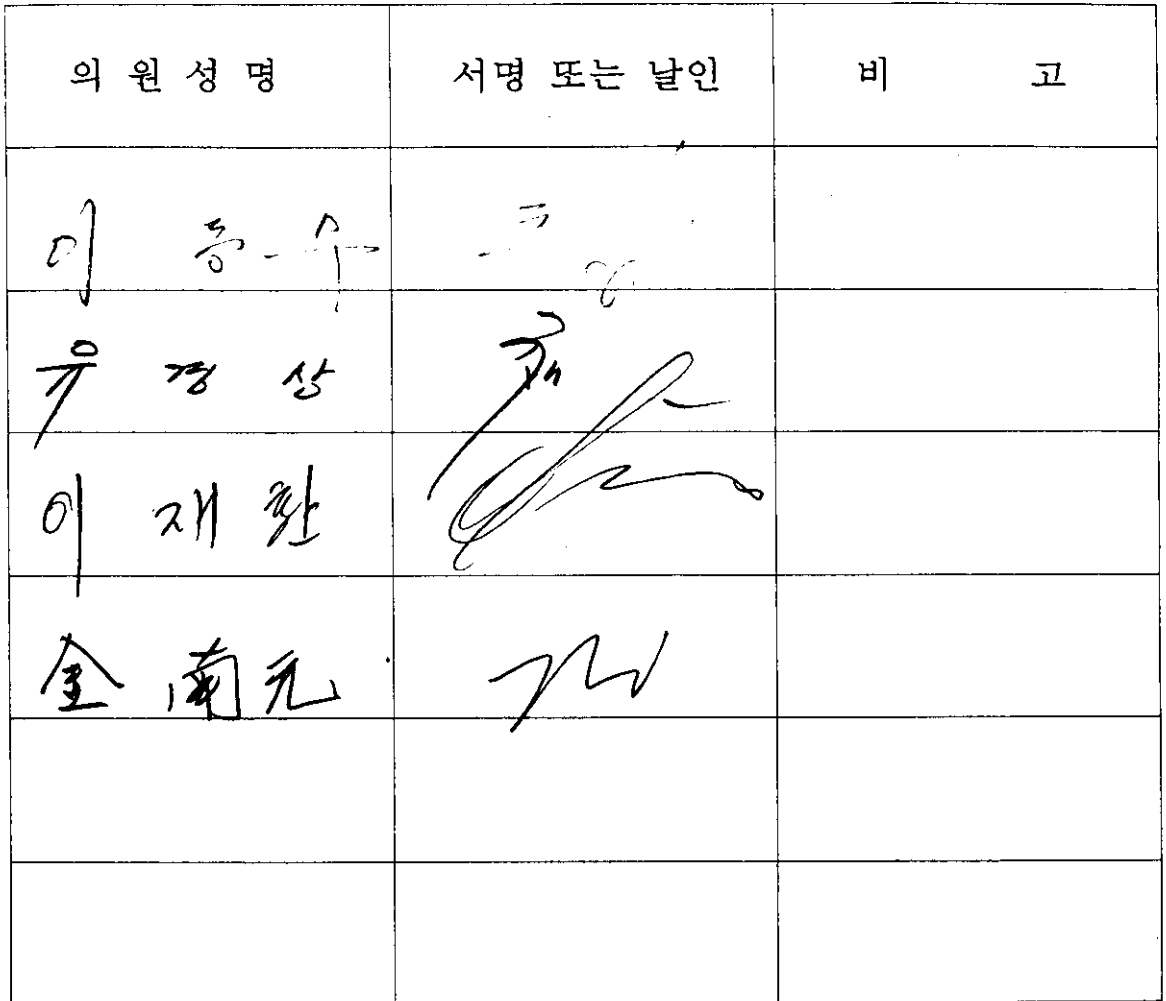 의 원 성 명 서명 또는 날인 비 고
이
유 경 상
이 재 환
金 南 元